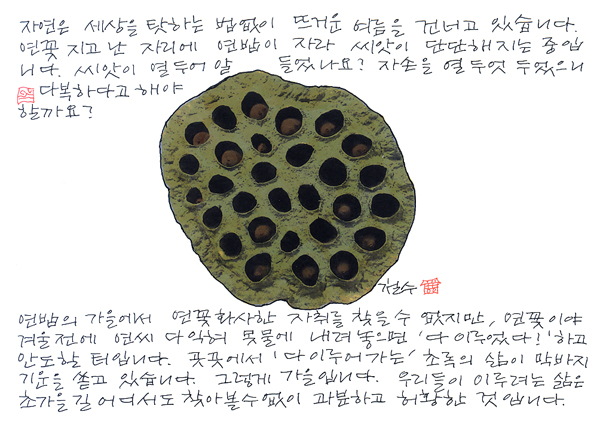 자연은 세상을 탓하는 법없이 뜨거운 여름을 건너고 있습니다.
연꽃 지고난 자리에 연밥이 자라 씨앗이 단단해지는 중입
니다. 씨앗이 열두어알 들었나요? 자손을 열두엇 두었으니
다복하다고 해야
할까요?
철수
연밥의 가을에서 연꽃화사한 자취를 찾을수 없지만, 연꽃이야
겨울전에 연씨 다익혀 못물에 내려놓으면 '다 이루었다!'하고
안도할 터입니다. 곳곳에서 '다이루어가는' 초록의 삶이 막바지
기운을 쏟고 있습니다. 그렇게 가을입니다. 우리들이 이루려는 삶은
초가을길 어디서도 찾아볼수없이 과분하고 허황한 것 입니다.